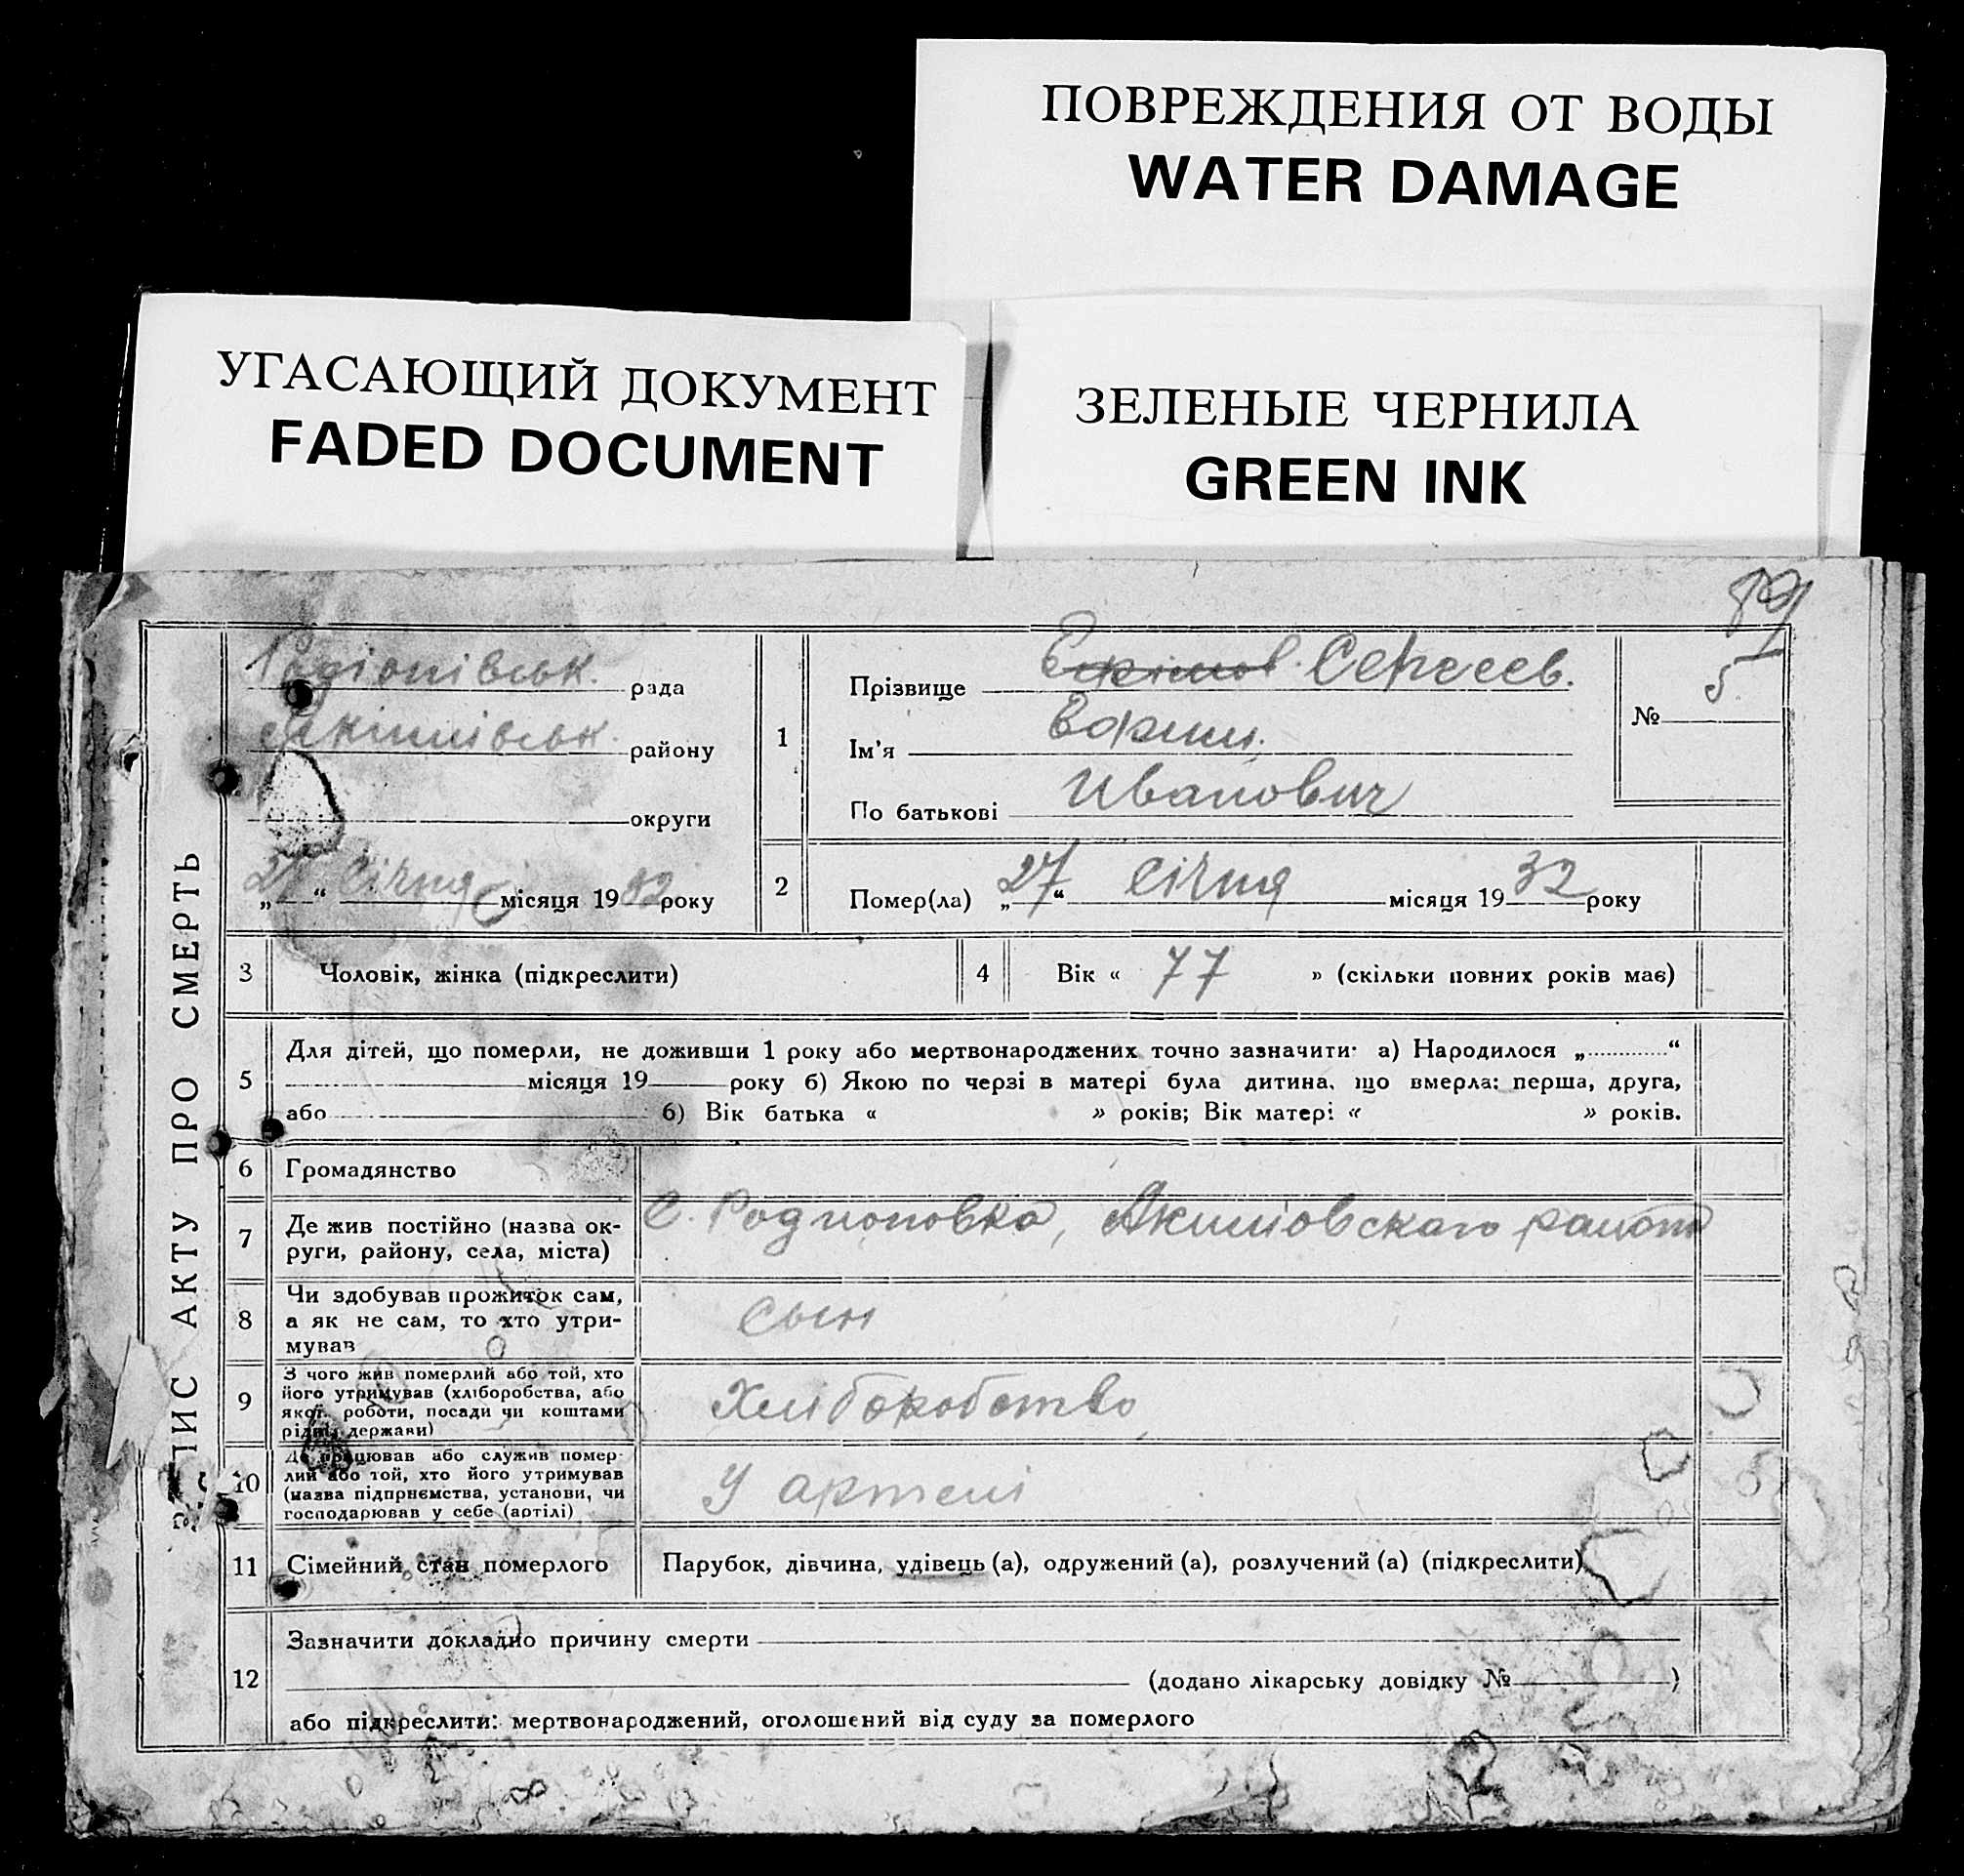 ПОВРЕЖДЕНИЯ ОТ ВОДЫ
WATER DAMAGE
УГАСАЮЩИЙ ДОКУМЕНТ
FADED DOCUMENT
ЗЕЛЕНЫЕ ЧЕРНИЛА
GREEN INK
89
ЗАПИС АКТУ ПРО СМЕРТЬ
Родіонівськ. рада
Якимівськ. району
округи
„ “ Січня місяця 1932 року
1
Прізвище Сергеев.
Ім'я
По батькові Иванович
№ 5
2
Помер(ла) „27“ Січня місяця 1932 року
3 Чоловік, жінка (підкреслити)
4 Вік « 77 » (скільки повних років має)
5 Для дітей, що померли, не доживши 1 року або мертвонароджених точно зазначити: а) Народилося „ “
місяця 19 року б) Якою по черзі в матері була дитина, що вмерла: перша, друга,
або б) Вік батька « » років; Вік матері « » років.
6 Громадянство
7 Де жив постійно (назва ок-
руги, району, села, міста)
С. Родионовка, Акимовскаго района
8 Чи здобував прожиток сам,
а як не сам, то хто утри-
мував
сын
9 З чого жив померлий або той, хто
його утримував (хліборобства, або
якої роботи, посади чи коштами
рідні, держави)
Хліборобство
10 Де працював або служив помер-
лий або той, хто його утримував
(назва підприємства, установи, чи
господарював у себе (артілі)
У артелі
11 Сімейний стан померлого
Парубок, дівчина, удівець (а), одружений (а), розлучений (а) (підкреслити)
12 Зазначити докладно причину смерти
(додано лікарську довідку № )
або підкреслити: мертвонароджений, оголошений від суду за померлого